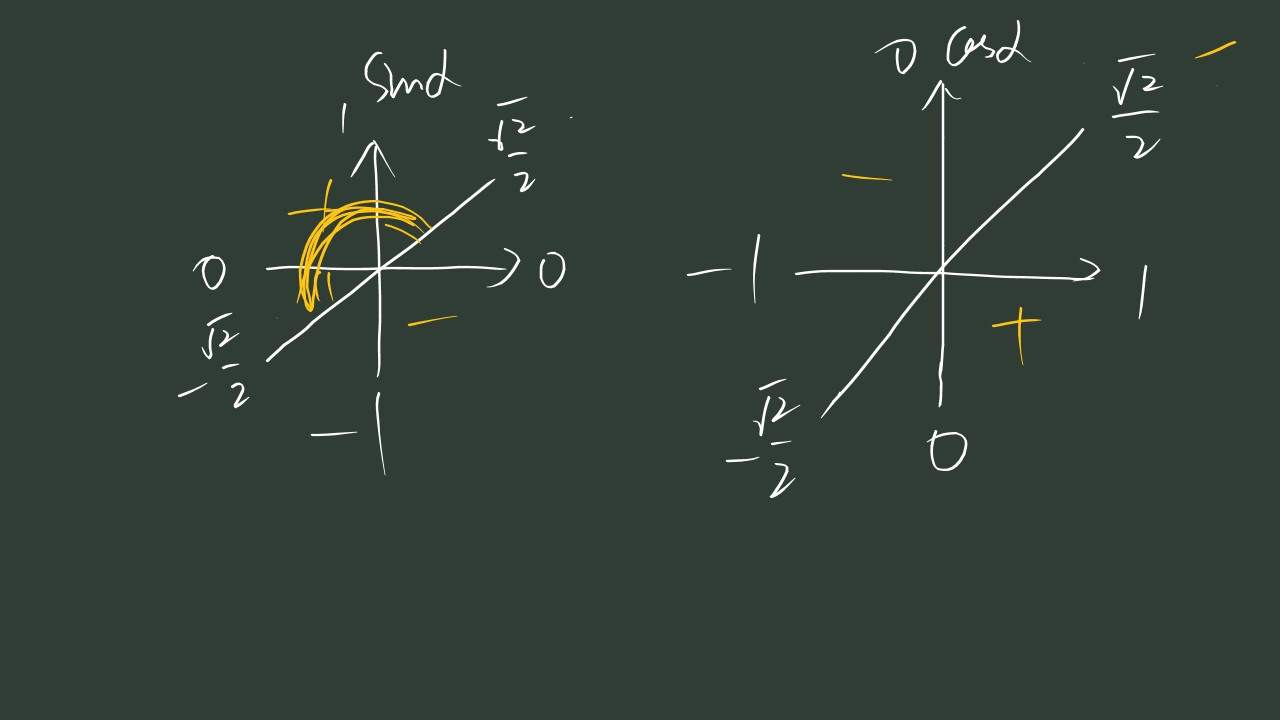 sinα
1
√2/2
+
0
0
-√2/2
-
-1
0 cosα
√2/2
-
-
-1
1
+
-√2/2
0